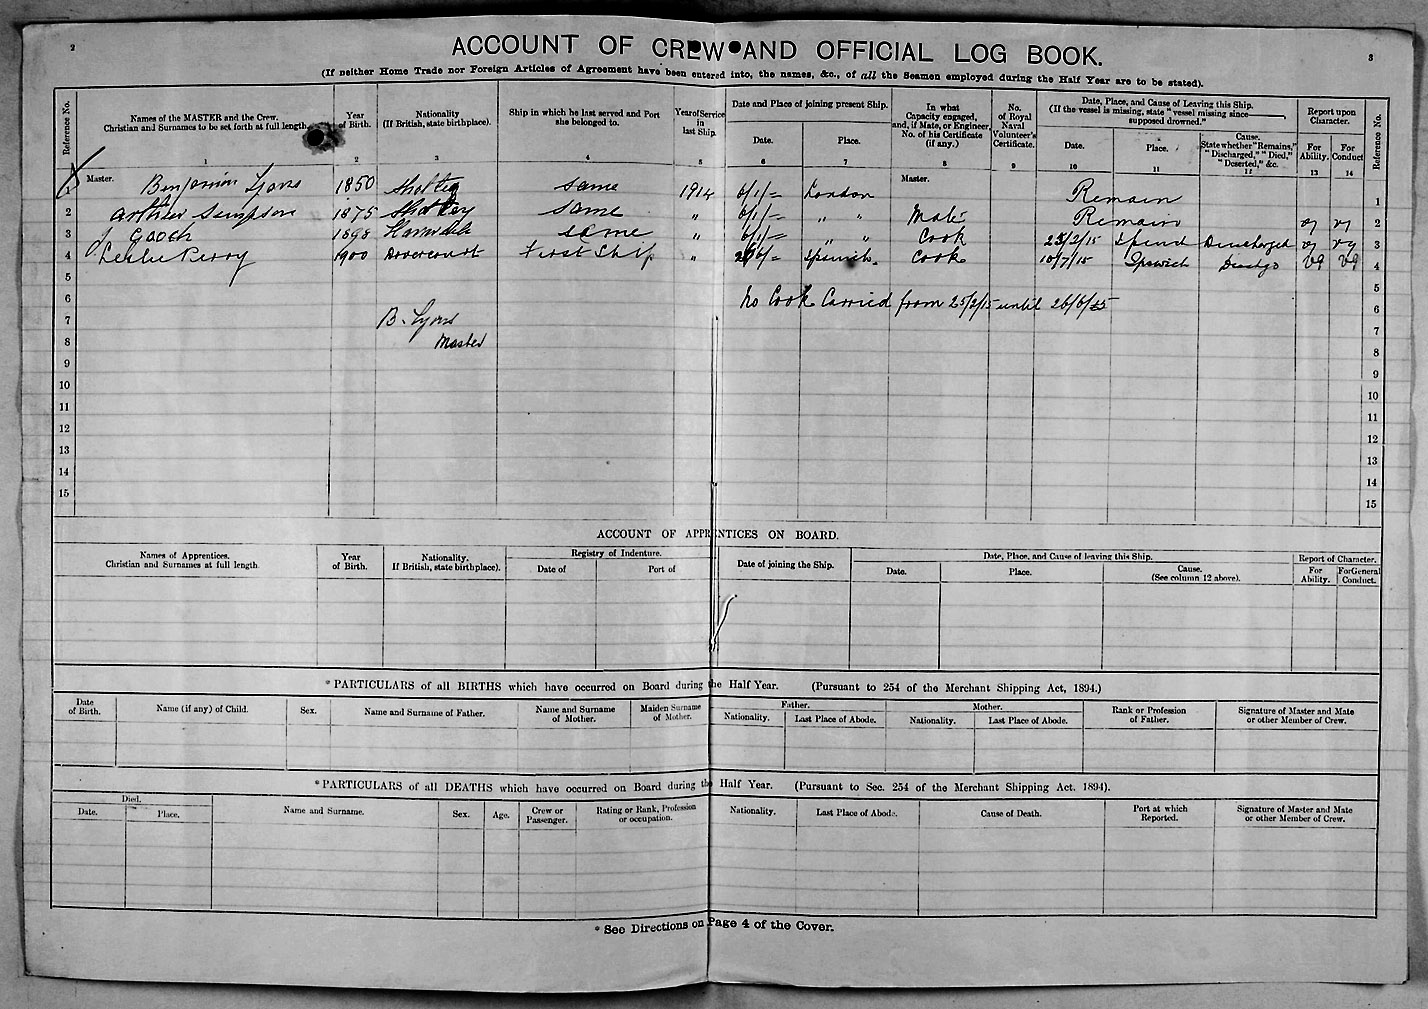 2
3
ACCOUNT OF CREW AND OFFICIAL LOG BOOK.
(If neither Home Trade nor Foreign Articles of Agreement have been entered into, the names, &c., of all the Seamen employed during the Half Year are to be stated).
Reference No. Names of the MASTER and the Crew. Christian and Surnames to be set forth at full length. Year of Birth. Nationality (If British, state birthplace). Ship in which he last served and Port she belonged to. Year of Service in last Ship. Date and Place of joining present Ship. Date. Place. In what Capacity engaged, and, if Mate, or Engineer, No. of his Certificate (if any.) No. of Royal Naval Volunteer's Certificate. Date, Place, and Cause of Leaving this Ship. (If the vessel is missing, state "vessel missing since———, supposed drowned." Date. Place. Cause. State whether "Remains," "Discharged," "Died," "Deserted," &c. Report upon Character. For Ability. For Conduct Reference No.
1 2 3 4 5 6 7 8 9 10 11 12 13 14
1 Master. Benjamin Lyons 1850 Shotley same 1914 6/1/= London Master. Remain 1
2 Arthur Sampson 1875 Shotley same " 6/1/= " " Mate Remain vg vg 2
3 J Gooch 1898 same " 6/1/= " " Cook 25/2/15 Discharged vg vg 3
4 Leslie Perry 1900 Dovercourt First Ship " Ipswich. Cook 10/7/15 Ipswich VG VG 4
5 5
6 No Cook Carried from 25/2/15 until 26/6/15 6
7 B. Lyons 7
8 Master 8
9 9
10 10
11 11
12 12
13 13
14 14
15 15
ACCOUNT OF APPRENTICES ON BOARD.
Names of Apprentices. Christian and Surnames at full length. Year of Birth. Nationality. If British, state birthplace). Registry of Indenture. Date of Port of Date of joining the Ship. Date, Place, and Cause of leaving this Ship. Date. Place. Cause. (See column 12 above). Report of Character. For Ability. For General Conduct.
*PARTICULARS of all BIRTHS which have occurred on Board during the Half Year. (Pursuant to 254 of the Merchant Shipping Act, 1894.)
Date of Birth. Name (if any) of Child. Sex. Name and Surname of Father. Name and Surname of Mother. Maiden Surname of Mother. Father. Nationality. Last Place of Abode. Mother. Nationality. Last Place of Abode. Rank or Profession of Father. Signature of Master and Mate or other Member of Crew.
*PARTICULARS of all DEATHS which have occurred on Board during the Half Year. (Pursuant to Sec. 254 of the Merchant Shipping Act, 1894).
Died. Date. Place. Name and Surname. Sex. Age. Crew or Passenger. Rating or Rank, Profession or occupation. Nationality. Last Place of Abode. Cause of Death. Port at which Reported. Signature of Master and Mate or other Member of Crew.
* See Directions on Page 4 of the Cover.